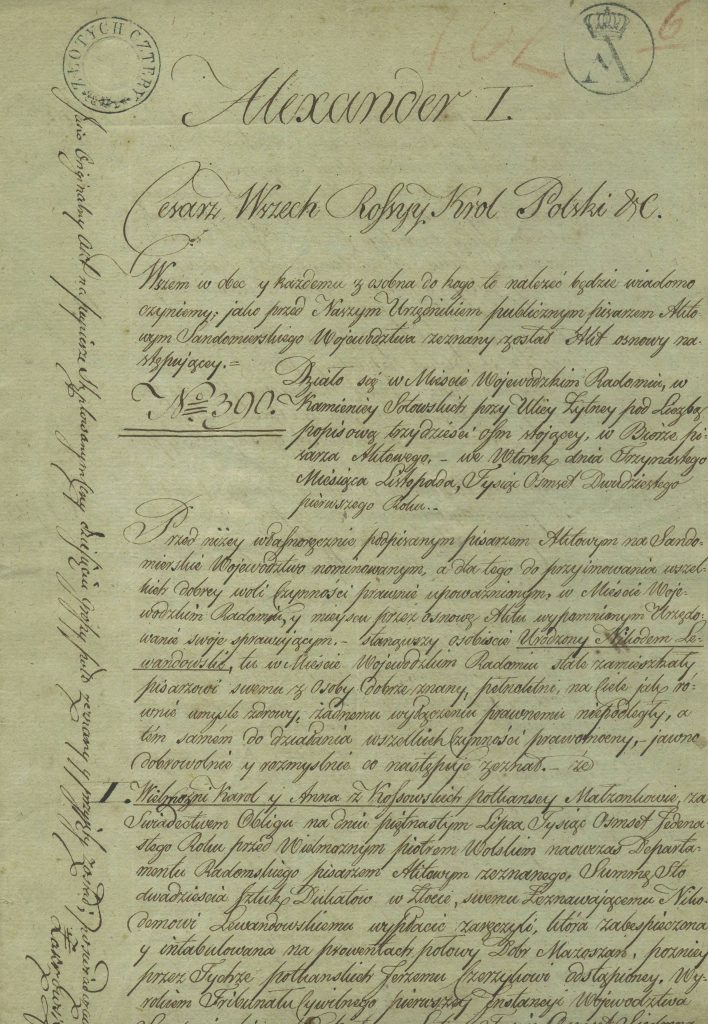 ZŁOTYCH CZTERY
A
762
6
Alexander I.
Cesarz Wszech Rossyy, Krol Polski &C.
Wszem w obec y każdemu z osobna do kogo to należeć będzie wiadomo
czyniemy; jako przed Naszym Urzędnikiem publicznym pisarzem Akto-
wym Sandomierskiego Woiewodztwa zeznany został Akt osnowy na-
stępuiącey. =
No. 390.
Działo się w Mieście Woiewodzkim Radomiu, w
Kamienicy Sołowskich przy Ulicy Żytney pod Liczbą
popisową trzydzieści ośm stoiącey, w Biórze pi-
sarza Aktowego. – we Wtorek dnia Trzynastego
Miesiąca Listopada, Tysiąc Osmset Dwudziestego
pierwszego Roku. –
Przed niżey własnoręcznie podpisanym pisarzem Aktowym na Sando-
mierskie Woiewodztwo nominowanym, a dla tego do przyimowania wszel-
kich dobrey woli Czynności prawnie upoważnionym, w Mieście Woie-
wodzkim Radomiu, y mieyscu przez osnowę Aktu wypomnionym Urzędo-
wanie swoie sprawuiącym. – stanąwszy osobiście Urodzony Nikodem Le-
wandowski, tu w Mieście Woiewodzkim Radomiu stale zamieszkały
pisarzowi swemu z osoby dobrze znany, pełnoletni, na Ciele iak ró-
wnie umyśle zdrowy, żadnemu wyłączeniu prawnemu niepodległy, a
tém samem do działania wszelkich Czynności prawomocny, – iawno
dobrowolnie y rozmyślnie co następuie zeznał. – że
I. Wielmożni Karol y Anna z Kossowskich potkanscy Małżonkowie, za
Swiadectwem Obligu na dniu piętnastym Lipca Tysiąc Osmset Jedena-
stego Roku przed Wielmożnym piotrem Wolskim naowczas Departa-
mentu Radomskiego pisarzem Aktowym zeznanego, Summę Sto
dwadzieścia Sztuk Dukatow w Złocie, swemu Zeznawaiącemu Niko-
demowi Lewandowskiemu wypłacić zaręczyli, która zabespieczona
y intabulowana na prowentach połowy Dobr Mazoszan, pozniey
przez Tychże potkanskich Jerzemu Czerzykowi odstąpioney, Wy-
rokiem Trybunału Cywilnego pierwszey Instancyi Woiewodztwa